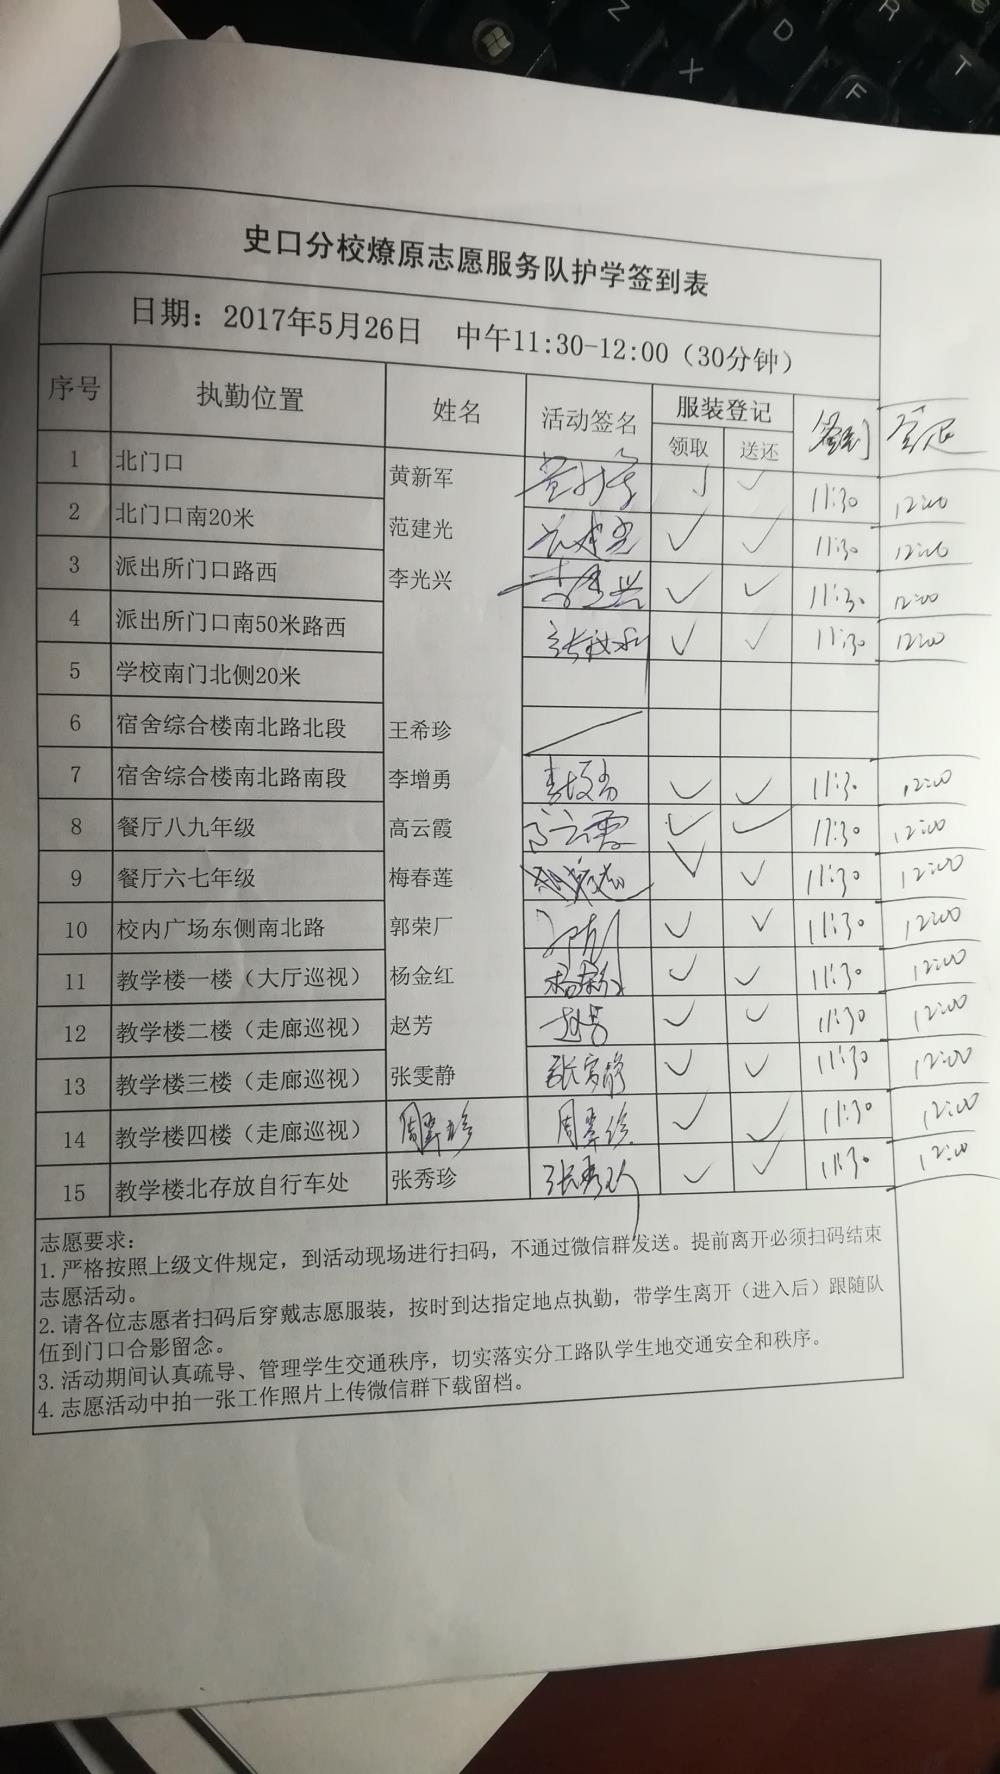 史口分校燎原志愿服务队护学签到表
日期：2017年5月26日 中午11:30-12:00（30分钟）
序号 执勤位置 姓名 活动签名 服装登记 签到 签退
领取 送还
1 北门口 黄新军 黄新军 √ √ 11:30 12:00
2 北门口南20米 范建光 范建光 √ √ 11:30 12:00
3 派出所门口路西 李光兴 李光兴 √ √ 11:30 12:00
4 派出所门口南50米路西 √ √ 11:30 12:00
5 学校南门北侧20米
6 宿舍综合楼南北路北段 王希珍
7 宿舍综合楼南北路南段 李增勇 李增勇 √ √ 11:30 12:00
8 餐厅八九年级 高云霞 高云霞 √ √ 11:30 12:00
9 餐厅六七年级 梅春莲 √ √ 11:30 12:00
10 校内广场东侧南北路 郭荣厂 √ √ 11:30 12:00
11 教学楼一楼（大厅巡视） 杨金红 √ √ 11:30 12:00
12 教学楼二楼（走廊巡视） 赵芳 赵芳 √ √ 11:30 12:00
13 教学楼三楼（走廊巡视） 张雯静 张雯静 √ √ 11:30 12:00
14 教学楼四楼（走廊巡视） 周翠珍 周翠珍 √ √ 11:30 12:00
15 教学楼北存放自行车处 张秀珍 张秀珍 √ √ 11:30 12:00
志愿要求：
1.严格按照上级文件规定，到活动现场进行扫码，不通过微信群发送。提前离开必须扫码结束
志愿活动。
2.请各位志愿者扫码后穿戴志愿服装，按时到达指定地点执勤，带学生离开（进入后）跟随队
伍到门口合影留念。
3.活动期间认真疏导、管理学生交通秩序，切实落实分工路队学生地交通安全和秩序。
4.志愿活动中拍一张工作照片上传微信群下载留档。
Z
X
D
F
R
T